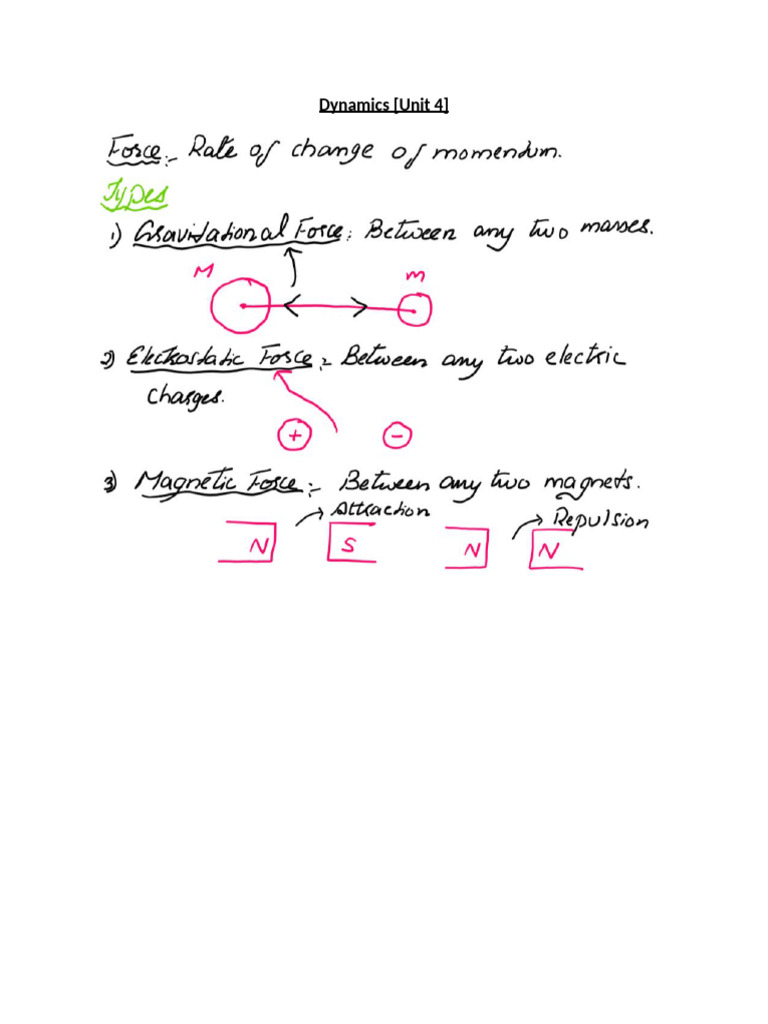 Dynamics [Unit 4]
Force:- Rate of change of momentum.
Types
1) Gravitational Force: Between any two masses.
M m
2) Electrostatic Force:- Between any two electric
charges.
+ -
3) Magnetic Force:- Between any two magnets.
Attraction Repulsion
N S N N